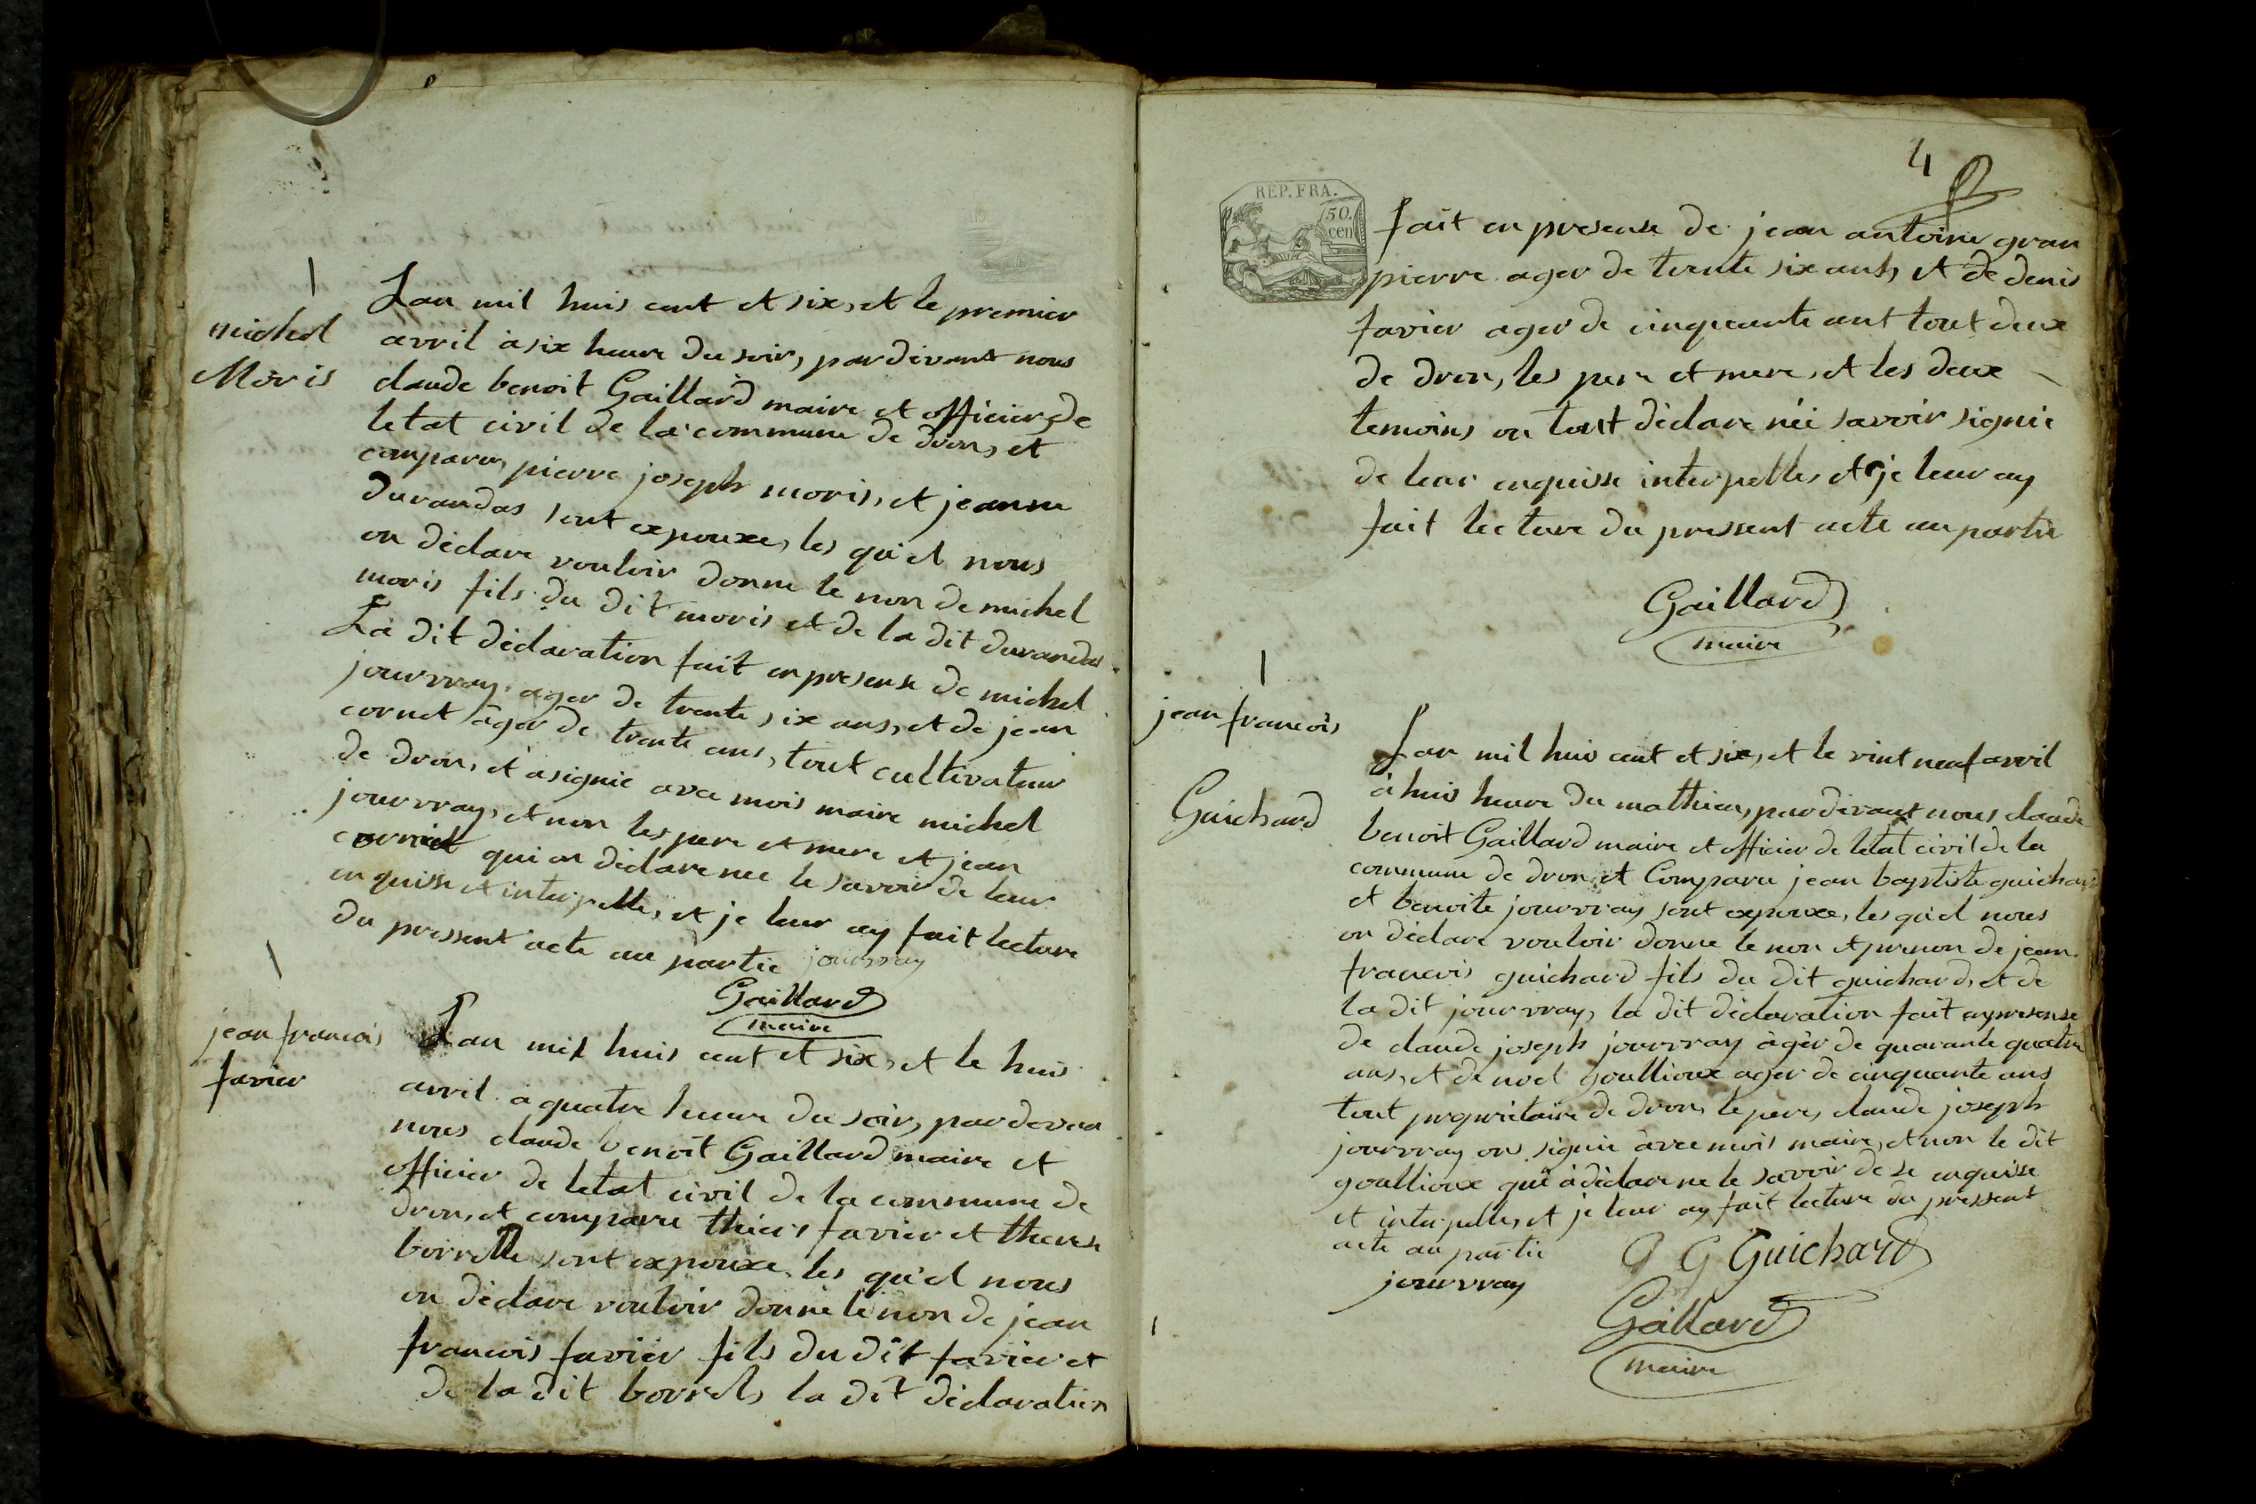 michel
Moris
Lan mil huis cent et six, et le premier
avril à six heure du soir, pardevant nous
claude benoit Gaillard maire et officier de
letat civil de la commune de dron, et
comparu, pierre joseph moris, et jeanne
durandas sont expouxe, les qu'el nous
on déclare vouloir donne le non de michel
moris fils du dit moris et de la dit durandas
La dit déclaration fait en presense de michel
jourvray ager de trente six ans, et de jean
cornet àger de trente ans, tout cultivateur
de dron, et a signie avec mois maire michel
jourvray, et non les pere et mere et jean
cornet qui on déclare nee le savoir de leur
enquisse et interpelle, et je leur ay fait lecture
du pressent acte au partie jourvray
Gaillard
maire
jean francois
favier
Lan mil huis cent et six, et le huis
avril à quatre heure du soir, par devan
nous claude benoit Gaillard maire et
officier de letat civil de la commune de
dron, et comparu favier et therese
borrelle sont expouxe, les qu'el nous
on déclare vouloir donne le non de jean
francois favier fils du dit favier et
de la dit borrel, la dit déclaration
4
REP. FRA.
50.
cen
fait en presense de jean antoine gran
pierre ager de trente six ans, et de denis
favier ager de cinquante ant tout deux
de dron, les pere et mere, et les deux
temoins on tout déclare néé savoir signie
de leur enquisse interpelle, et je leur ay
fait lecture du pressent acte au partie
Gaillard
maire
jean francois
Guichard
Lan mil huis cent et six, et le vint neuf avril
à huis heure du mathien, pardevant nous claude
benoit Gaillard maire et officier de letat civil de la
commune de dron et Comparu jean baptiste guichard
et benoite jourvray sont expouxe, les qu'el nous
on déclare vouloir donne le non et prenon de jean
francois guichard fils du dit guichard, et de
la dit jourvray, la dit déclaration fait en presense
de claude joseph jourvray àgér de quarante quatre
ans, et de noel goullioux ager de cinquante ans
tout propriétaire de dron, le pere, claude joseph
jourvray on signie avec mois maire, et non le dit
goullioux qui à déclare ne le savoir de se enquisse
et interpelle, et je leur ay fait lecture du pressent
acte au partie G G Guichard
jourvray
Gaillard
maire